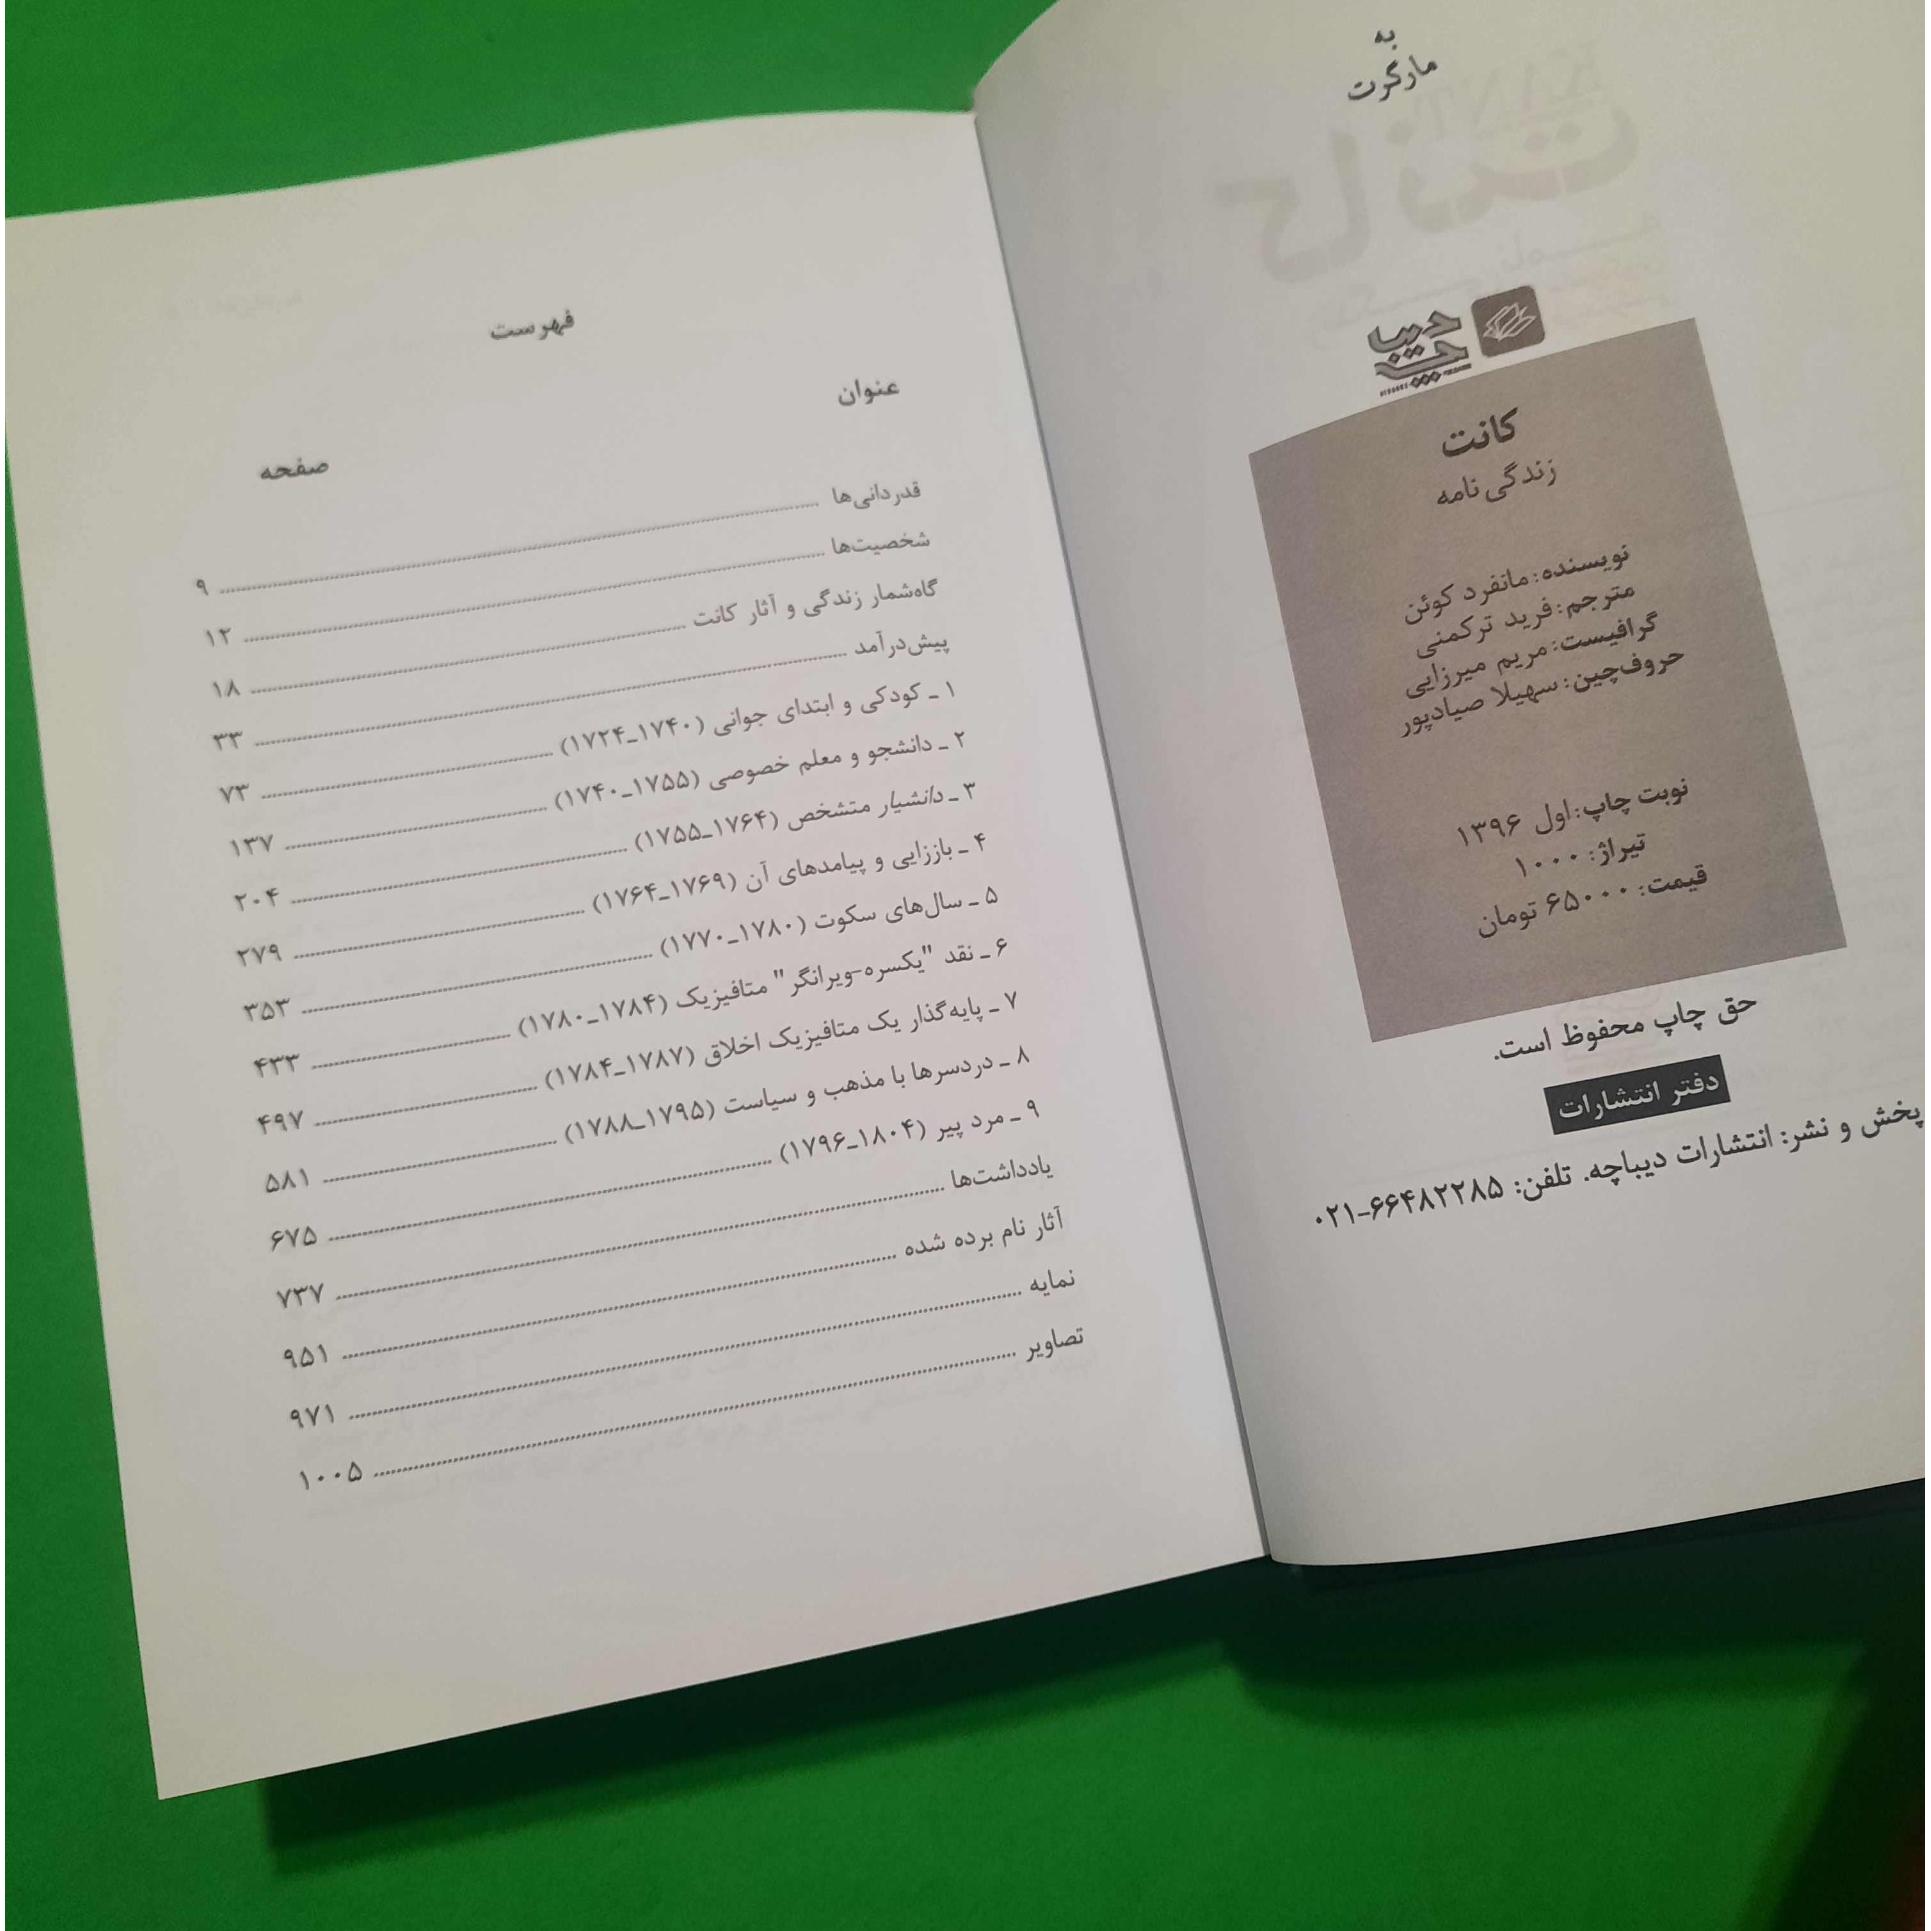 به
مارگرت
کانت
زندگی نامه
نویسنده: مانفرد کوئن
مترجم: فرید ترکمنی
گرافیست: مریم میرزایی
حروف‌چین: سهیلا صیادپور
نوبت چاپ: اول ۱۳۹۶
تیراژ: ۱۰۰۰
قیمت: ۶۵۰۰۰ تومان
حق چاپ محفوظ است.
دفتر انتشارات
پخش و نشر: انتشارات دیباچه. تلفن: ۶۶۴۸۲۲۸۵-۰۲۱
فهرست
عنوان
صفحه
قدردانی‌ها ........ ۹
شخصیت‌ها ........ ۱۲
گاه‌شمار زندگی و آثار کانت ........ ۱۸
پیش‌درآمد ........ ۳۳
۱ ـ کودکی و ابتدای جوانی (۱۷۴۰ـ۱۷۲۴) ........ ۷۳
۲ ـ دانشجو و معلم خصوصی (۱۷۵۵ـ۱۷۴۰) ........ ۱۳۷
۳ ـ دانشیار متشخص (۱۷۶۴ـ۱۷۵۵) ........ ۲۰۴
۴ ـ باززایی و پیامدهای آن (۱۷۶۹ـ۱۷۶۴) ........ ۲۷۹
۵ ـ سال‌های سکوت (۱۷۸۰ـ۱۷۷۰) ........ ۳۵۳
۶ ـ نقد "یکسره-ویرانگر" متافیزیک (۱۷۸۴ـ۱۷۸۰) ........ ۴۳۳
۷ ـ پایه‌گذار یک متافیزیک اخلاق (۱۷۸۷ـ۱۷۸۴) ........ ۴۹۷
۸ ـ دردسرها با مذهب و سیاست (۱۷۹۵ـ۱۷۸۸) ........ ۵۸۱
۹ ـ مرد پیر (۱۸۰۴ـ۱۷۹۶) ........ ۶۷۵
یادداشت‌ها ........ ۷۳۷
آثار نام برده شده ........ ۹۵۱
نمایه ........ ۹۷۱
تصاویر ........ ۱۰۰۵